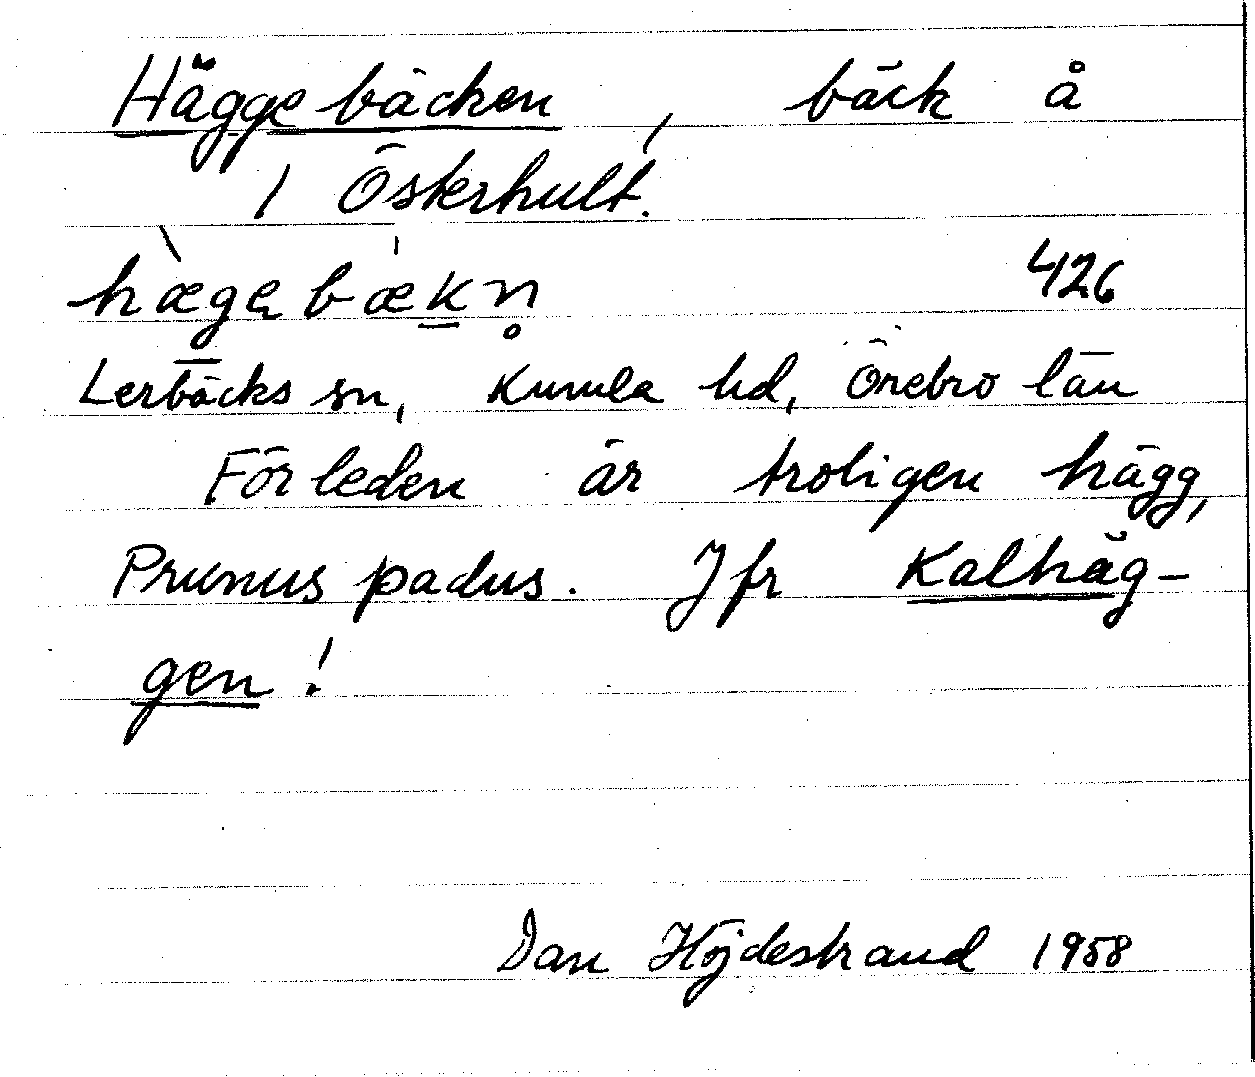 Häggebäcken, bäck å
1 Österhult.
hæ̀gebæ̍k̲n̥ 426
Lerbäcks sn, Kumla hd, Örebro län
Förleden är troligen hägg,
Prunus padus. Jfr Kalhäg-
gen!
Dan Höjdestrand 1958